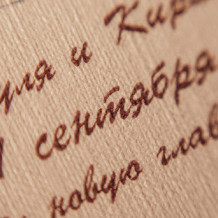 уля и Кир
1 сентября
новую глав